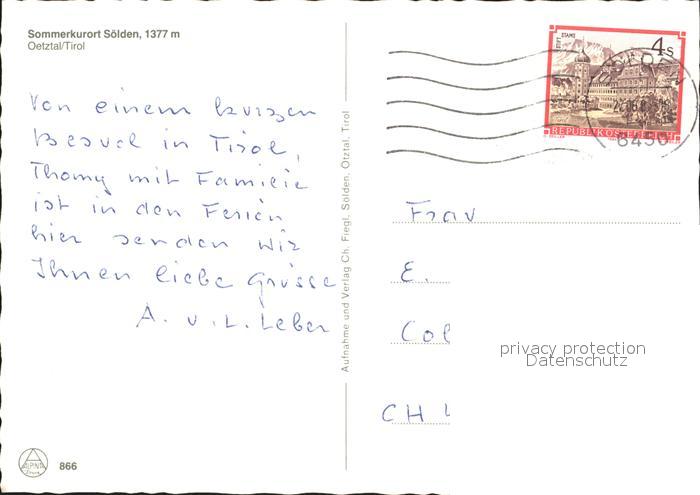 Sommerkurort Sölden, 1377 m
Oetztal/Tirol
Von einem kurzen
Besuch in Tirol,
Thomy mit Familie
ist in den Ferien
hier senden wir
Ihnen liebe Grüsse
A. u. L. Leber
Aufnahme und Verlag Ch. Fiegl, Sölden, Ötztal, Tirol
STIFT STAMS
4 S
REPUBLIK ÖSTERREICH
6450
Frau
E.
Col
CH
privacy protection
Datenschutz
ALPINA
866